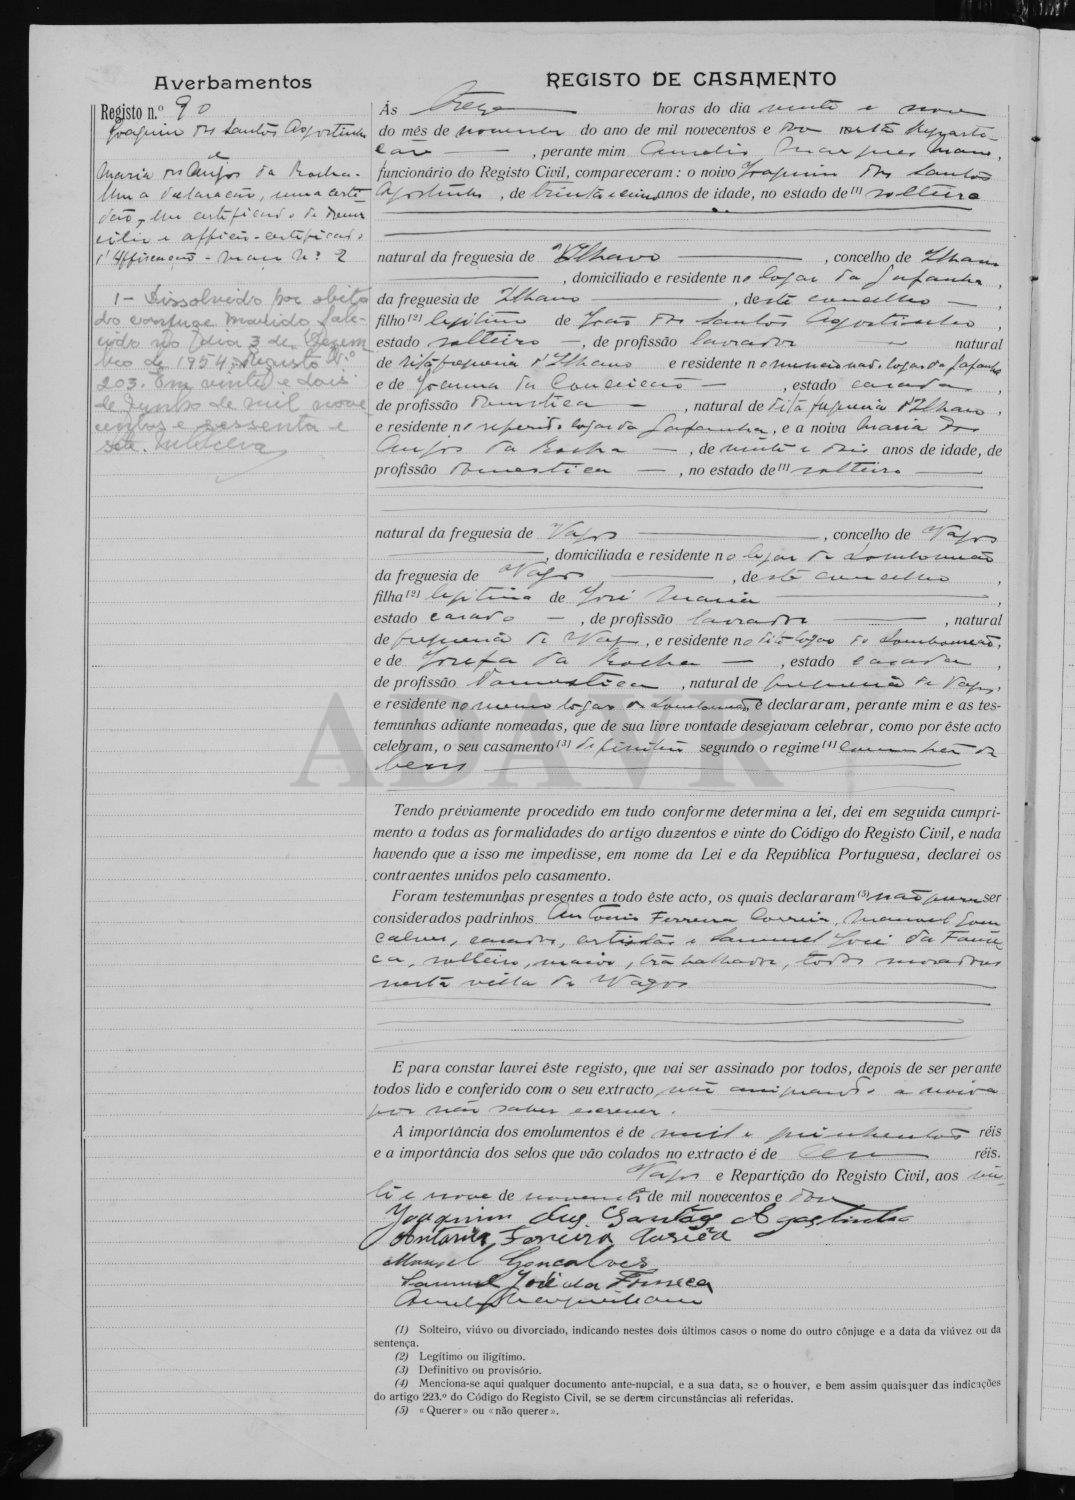 Averbamentos
Registo n.º 90
Joaquim dos Santos Agostinho
e
Maria dos Anjos da Rocha.
Uma declaração, uma certi-
dão, um certificado de domi
cilio e affição-certificado
d'Affixação - maço n.º 2
1 - Dissolvido por obito
do conjuge marido fale-
cido no dia 3 de Dezem
bro de 1954, Registo n.º
203. Em vinte e dois
de Junho de mil nove
centos e sessenta e
sete.
REGISTO DE CASAMENTO
Ás treze horas do dia vinte e nove
do mês de novembro do ano de mil novecentos e doze nesta Reparti-
ção, perante mim Amadeu Marques Mano,
funcionário do Registo Civil, compareceram: o noivo Joaquim dos Santos
Agostinho, de trinta e cinco anos de idade, no estado de (1) solteiro
natural da freguesia de Ilhavo, concelho de Ilhavo
, domiciliado e residente no logar da Gafanha,
da freguesia de Ilhavo, deste concelho,
filho (2) legitimo de João dos Santos Agostinho,
estado solteiro, de profissão lavrador natural
de dita freguesia d'Ilhavo e residente no mencionado logar da Gafanha
e de Joanna da Conceição, estado casada,
de profissão domestica, natural de dita freguesia d'Ilhavo,
e residente no referido logar da Gafanha, e a noiva Maria dos
Anjos da Rocha, de vinte e dois anos de idade, de
profissão domestica, no estado de (1) solteira
natural da freguesia de Vagos, concelho de Vagos
, domiciliada e residente no logar de Lombomeão
da freguesia de Vagos, deste concelho,
filha (2) legitima de José Maria,
estado casado, de profissão lavrador, natural
de freguesia de Vagos, e residente no dito logar de Lombomeão,
e de Josefa da Rocha, estado casada,
de profissão domestica, natural de freguesia de Vagos,
e residente no mesmo logar de Lombomeão e declararam, perante mim e as tes-
temunhas adiante nomeadas, que de sua livre vontade desejavam celebrar, como por êste acto
celebram, o seu casamento (3) definitivo segundo o regime (4) comunhão de
bens
ADAVR
Tendo préviamente procedido em tudo conforme determina a lei, dei em seguida cumpri-
mento a todas as formalidades do artigo duzentos e vinte do Código do Registo Civil, e nada
havendo que a isso me impedisse, em nome da Lei e da República Portuguesa, declarei os
contraentes unidos pelo casamento.
Foram testemunhas presentes a todo êste acto, os quais declararam (5) não querer ser
considerados padrinhos Antonio Ferreira Correia, Manuel Gon
calves, casados, artistas e Samuel José da Fonse
ca, solteiro, maior, trabalhador, todos moradores
nesta villa de Vagos
E para constar lavrei êste registo, que vai ser assinado por todos, depois de ser perante
todos lido e conferido com o seu extracto não assignando a noiva
por não saber escrever.
A importância dos emolumentos é de mil e quinhentos réis
e a importância dos selos que vão colados no extracto é de cem réis.
Vagos e Repartição do Registo Civil, aos vin-
te e nove de novembro de mil novecentos e doze
Joaquim dus Santos Agostinho
Antonio Ferreira Correia
Manuel Goncalves
Samuel José da Fonseca
(1) Solteiro, viúvo ou divorciado, indicando nestes dois últimos casos o nome do outro cônjuge e a data da viúvez ou da
sentença.
(2) Legítimo ou iligítimo.
(3) Definitivo ou provisório.
(4) Menciona-se aqui qualquer documento ante-nupcial, e a sua data, se o houver, e bem assim quaisquer das indicações
do artigo 223.º do Código do Registo Civil, se se derem circunstâncias ali referidas.
(5) «Querer» ou «não querer».